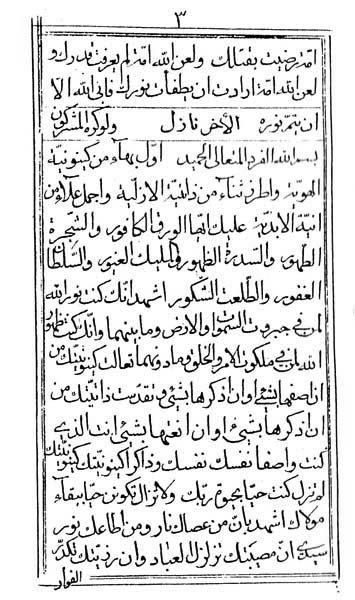 ٣
امة رضيت بقتلك ولعن الله امة لم يعرفت قدرك و
لعن الله امة ارادت ان يطفئ نورك فابى الله الا
ان يتم نوره الاخر نازل ولو كره المشركون
بسم الله الفرد المتعالى الحميد اول بهاء من كينونية
الهوية واطرز ثناء من ذاتية الازلية واجمل علاء من
انية الابدية عليك ايها الورق الكافور والشجرة
الطهور والسدرة الظهور والمليك الغيور والسلطان
الغفور والطلعت الشكور اشهد انك كنت نور الله
فى جبروت السموات والارض وما بينهما وانك كنت ظهور
الله فى ملكوت الامر والخلق وما دونهما تعالت كينونيتك من
ان اصفها بشئ او ان اذكرها بشئ وتقدست ذاتيتك من
ان اذكرها بشئ او ان انعتها بشئ انت الذى
كنت واصفا نفسك نفسك وذاكرا كينونيتك كينونيتك
لم تزل كنت حيا بحيوة ربك ولا تزال تكونن حيا ببقاء
مولاك اشهد بان من عصاك نار ومن اطاعك نور
سيدى ان مصيبتك تزلزل العباد وان رزيتك تكدر
الفواد